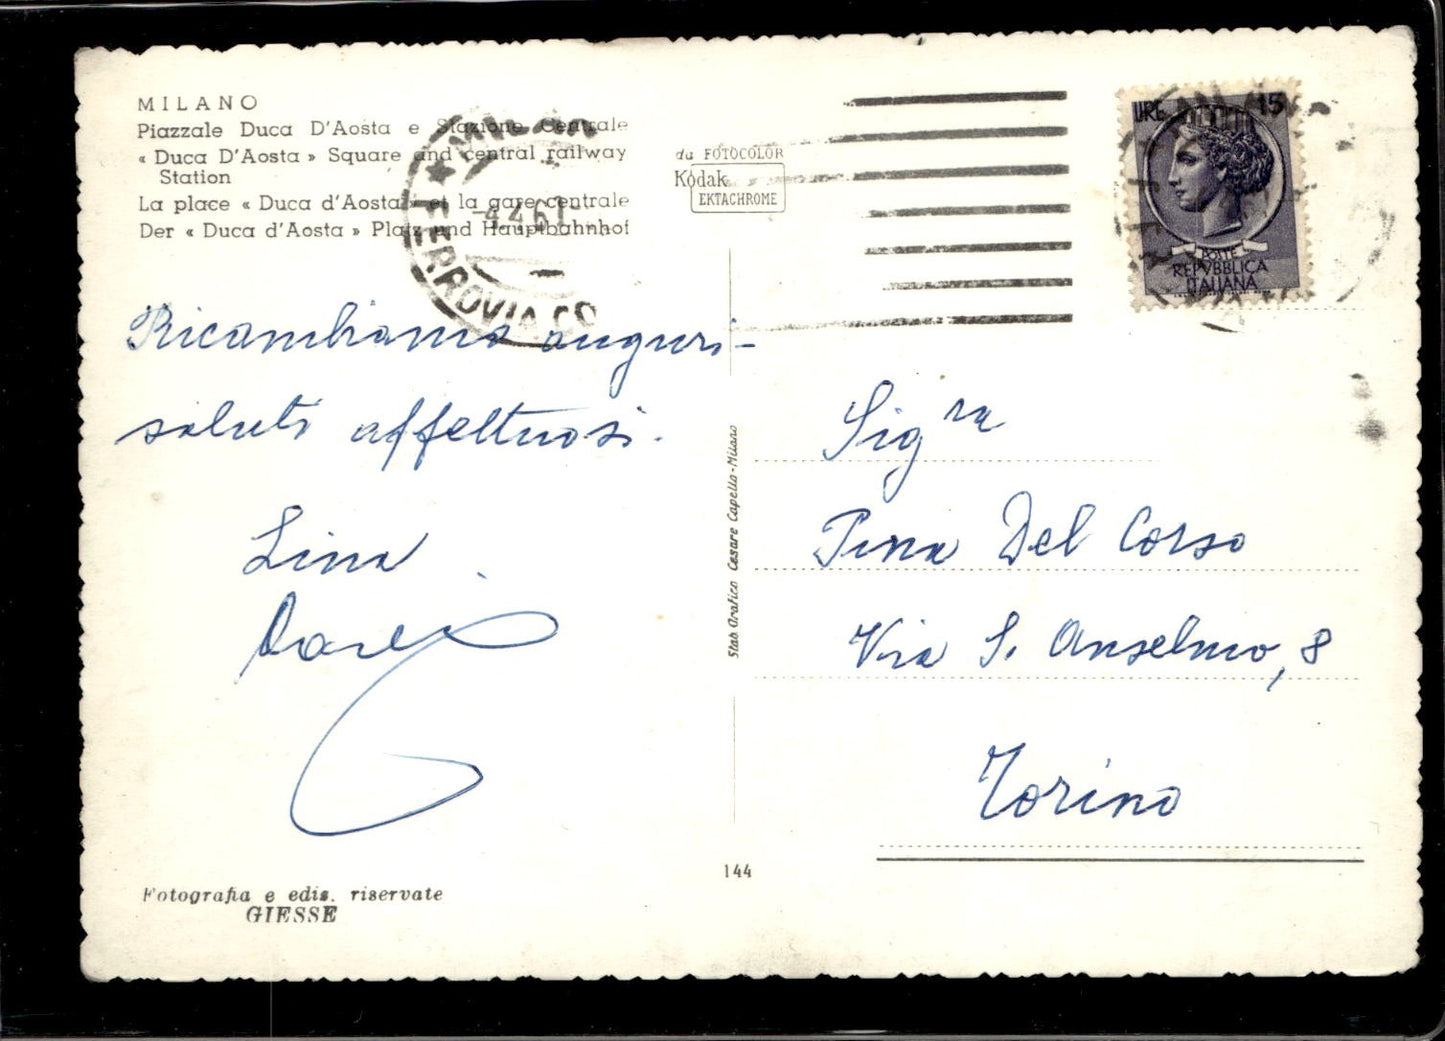 MILANO
Piazzale Duca D'Aosta e Stazione Centrale
« Duca D'Aosta » Square and central railway
Station
La place « Duca d'Aosta » et la gare centrale
Der « Duca d'Aosta » Platz und Hauptbahnhof
MILANO
FERROVIA
-4.4.61
da FOTOCOLOR
Kodak
EKTACHROME
LIRE 15
POSTE
REPVBBLICA
ITALIANA
Ricambiamo auguri -
saluti affettuosi.
Lina
Sig ra
Pina Del Corso
Via S. Anselmo, 8
Torino
Stab. Grafico Cesare Capello - Milano
144
Fotografia e edis. riservate
GIESSE